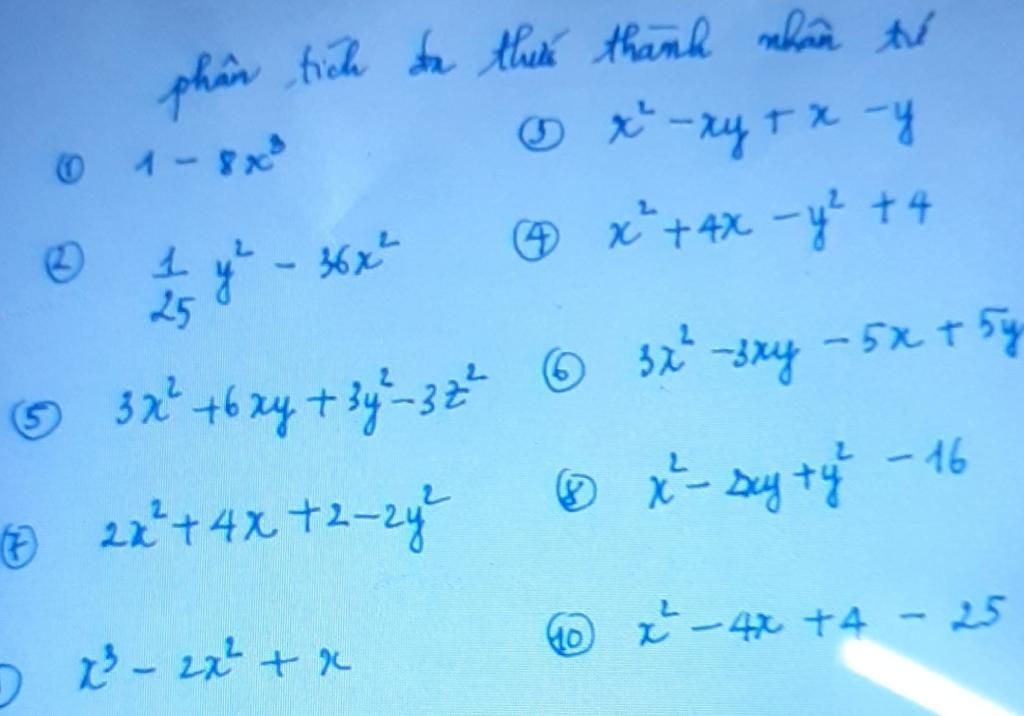 phân tích đa thức thành nhân tử
① 1 - 8x³
③ x² - xy + x - y
② 1/25 y² - 36x²
④ x² + 4x - y² + 4
⑤ 3x² + 6xy + 3y² - 3z²
⑥ 3x² - 3xy - 5x + 5y
⑦ 2x² + 4x + 2 - 2y²
⑧ x² - 2xy + y² - 16
x³ - 2x² + x
⑩ x² - 4x + 4 - 25